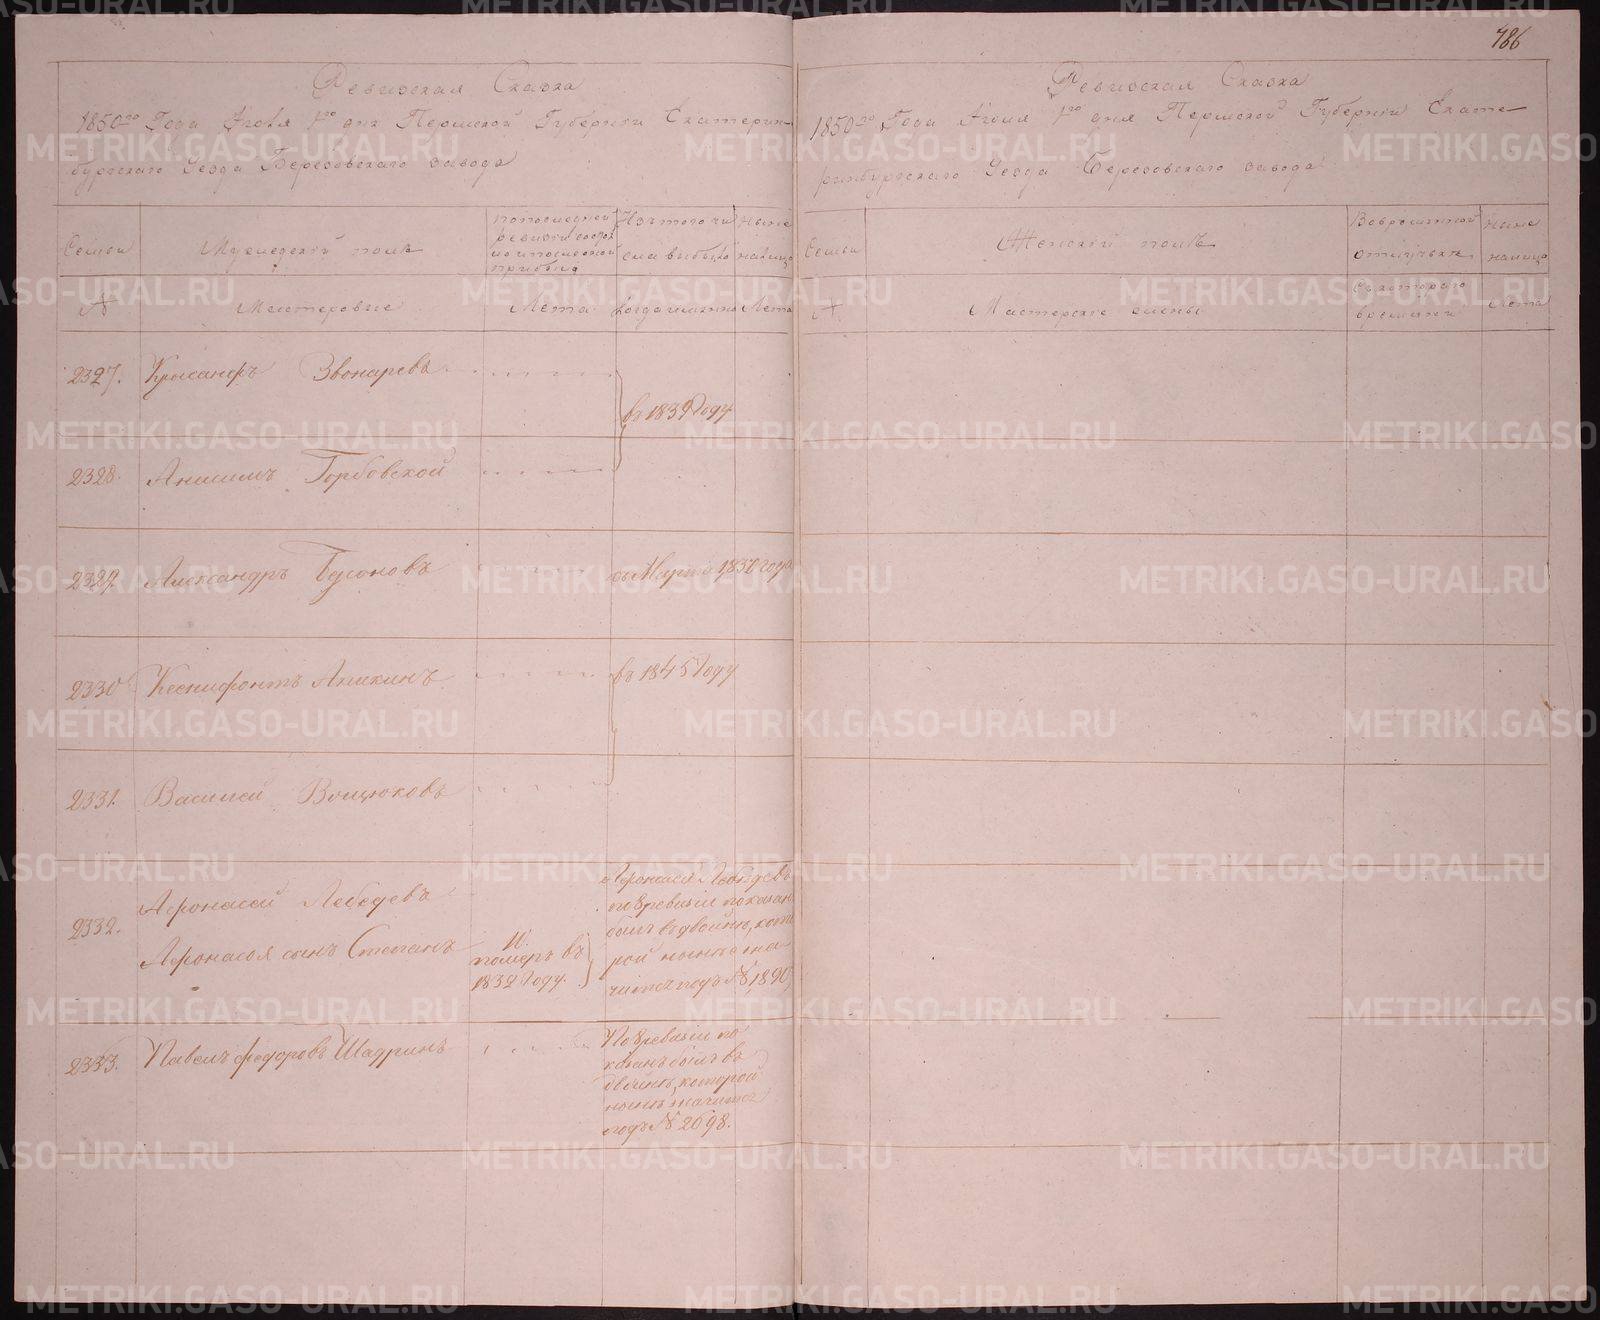 786
Ревизская Сказка
1850го Года Июля 1го дня Пермской Губерніи Екатерин-
бургскаго Уезда Березовскаго завода
Семьи
Мужескій полъ
По последней
ревизіи состо
яло и после оной
прибыло
Изъ того чи
сла выбыло
Ныне
налицо
№
Мастеровые
Лета
Когда именно
Лета
2327. Крисанфъ Звонаревъ
въ 1839 Году
2328. Анисимъ Горбовской
2329. Александръ Белоновъ
въ Марте 1832 года
2330 Ксенифонтъ Аникинъ
въ 1845 Году
2331. Василей Вощюковъ
2332.
Афонасей Лебедевъ
Афонасья сынъ Степанъ
померъ въ
1832 Году.
Афонасей Лебедевъ
по 8 ревизіи показан
былъ въ двойне, кото
рой ныне зна
чится подъ № 1890
2333. Павелъ Федоровъ Шадринъ
По 8 ревизіи по
казанъ былъ въ
двойне, которой
ныне значится
подъ № 2698.
Ревизская Сказка
1850го Года Июля 1го дня Пермской Губерніи Екате-
ринбургскаго Уезда Березовскаго завода
Семьи
Женскій полъ
Во временной
отлучке
Ныне
налицо
№
Мастерскіе жены
Съ котораго
времяни
Лета
METRIKI.GASO-URAL.RU